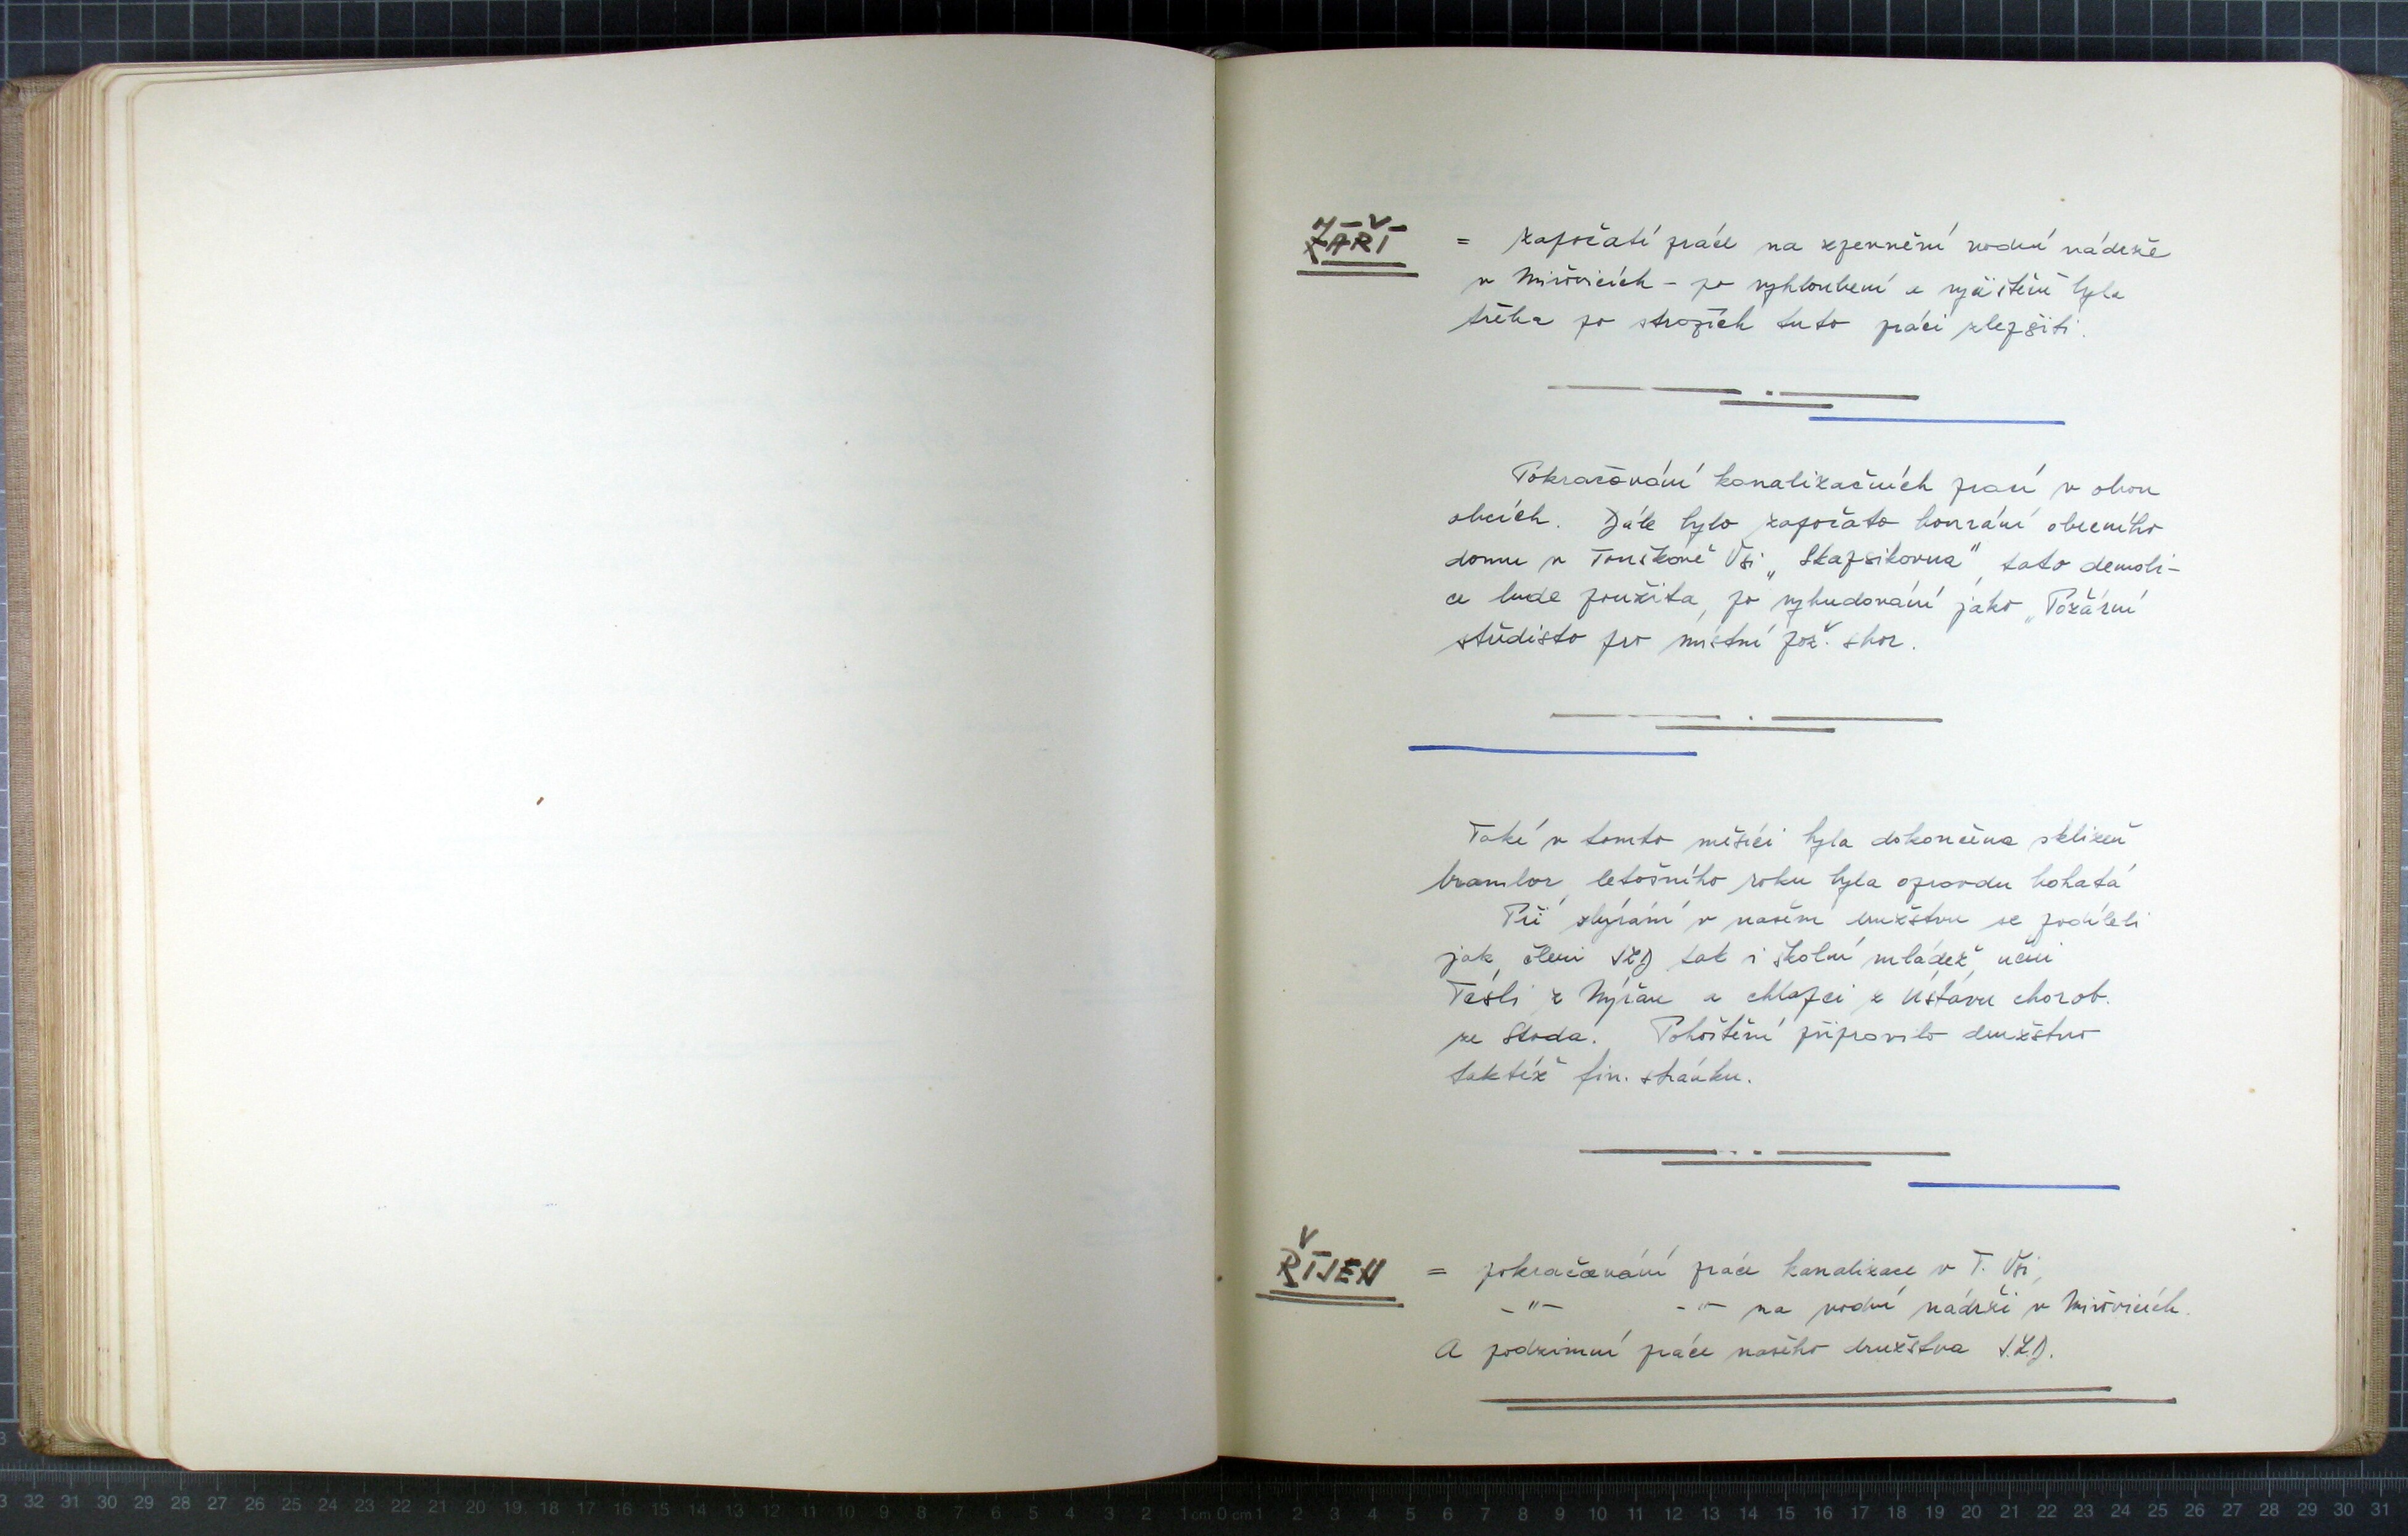 ZÁŘÍ = započatí práce na zpevnění vodní nádrže
v Miřovicích - po vyhloubení a vyčištění byla
třeba po strojích tuto práci zlepšiti.
Pokračování kanalizačních prací v obou
obcích. Dále bylo započato bourání obecního
domu v Touškově Vsi „Skapsikovna", tato demoli-
ce bude použita, po vybudování jako „Požární
středisto pro místní pož. sbor.
Také v tomto měsíci byla dokončena sklizeň
brambor, letošního roku byla opravdu bohatá
Při sbírání v našem družstvu se podíleli
jak členi JZD tak i školní mládež, učni
Tesli z Nýřan a chlapci z Ústavu chorob.
ze Stoda. Pohoštění připravilo družstvo
taktéž fin. stránku.
ŘÍJEN = pokračování práce kanalizace v T. Vsi,
-"- -"- na vodní nádrži v Miřovicích.
A podzimní práce našeho družstva J.Z.D.